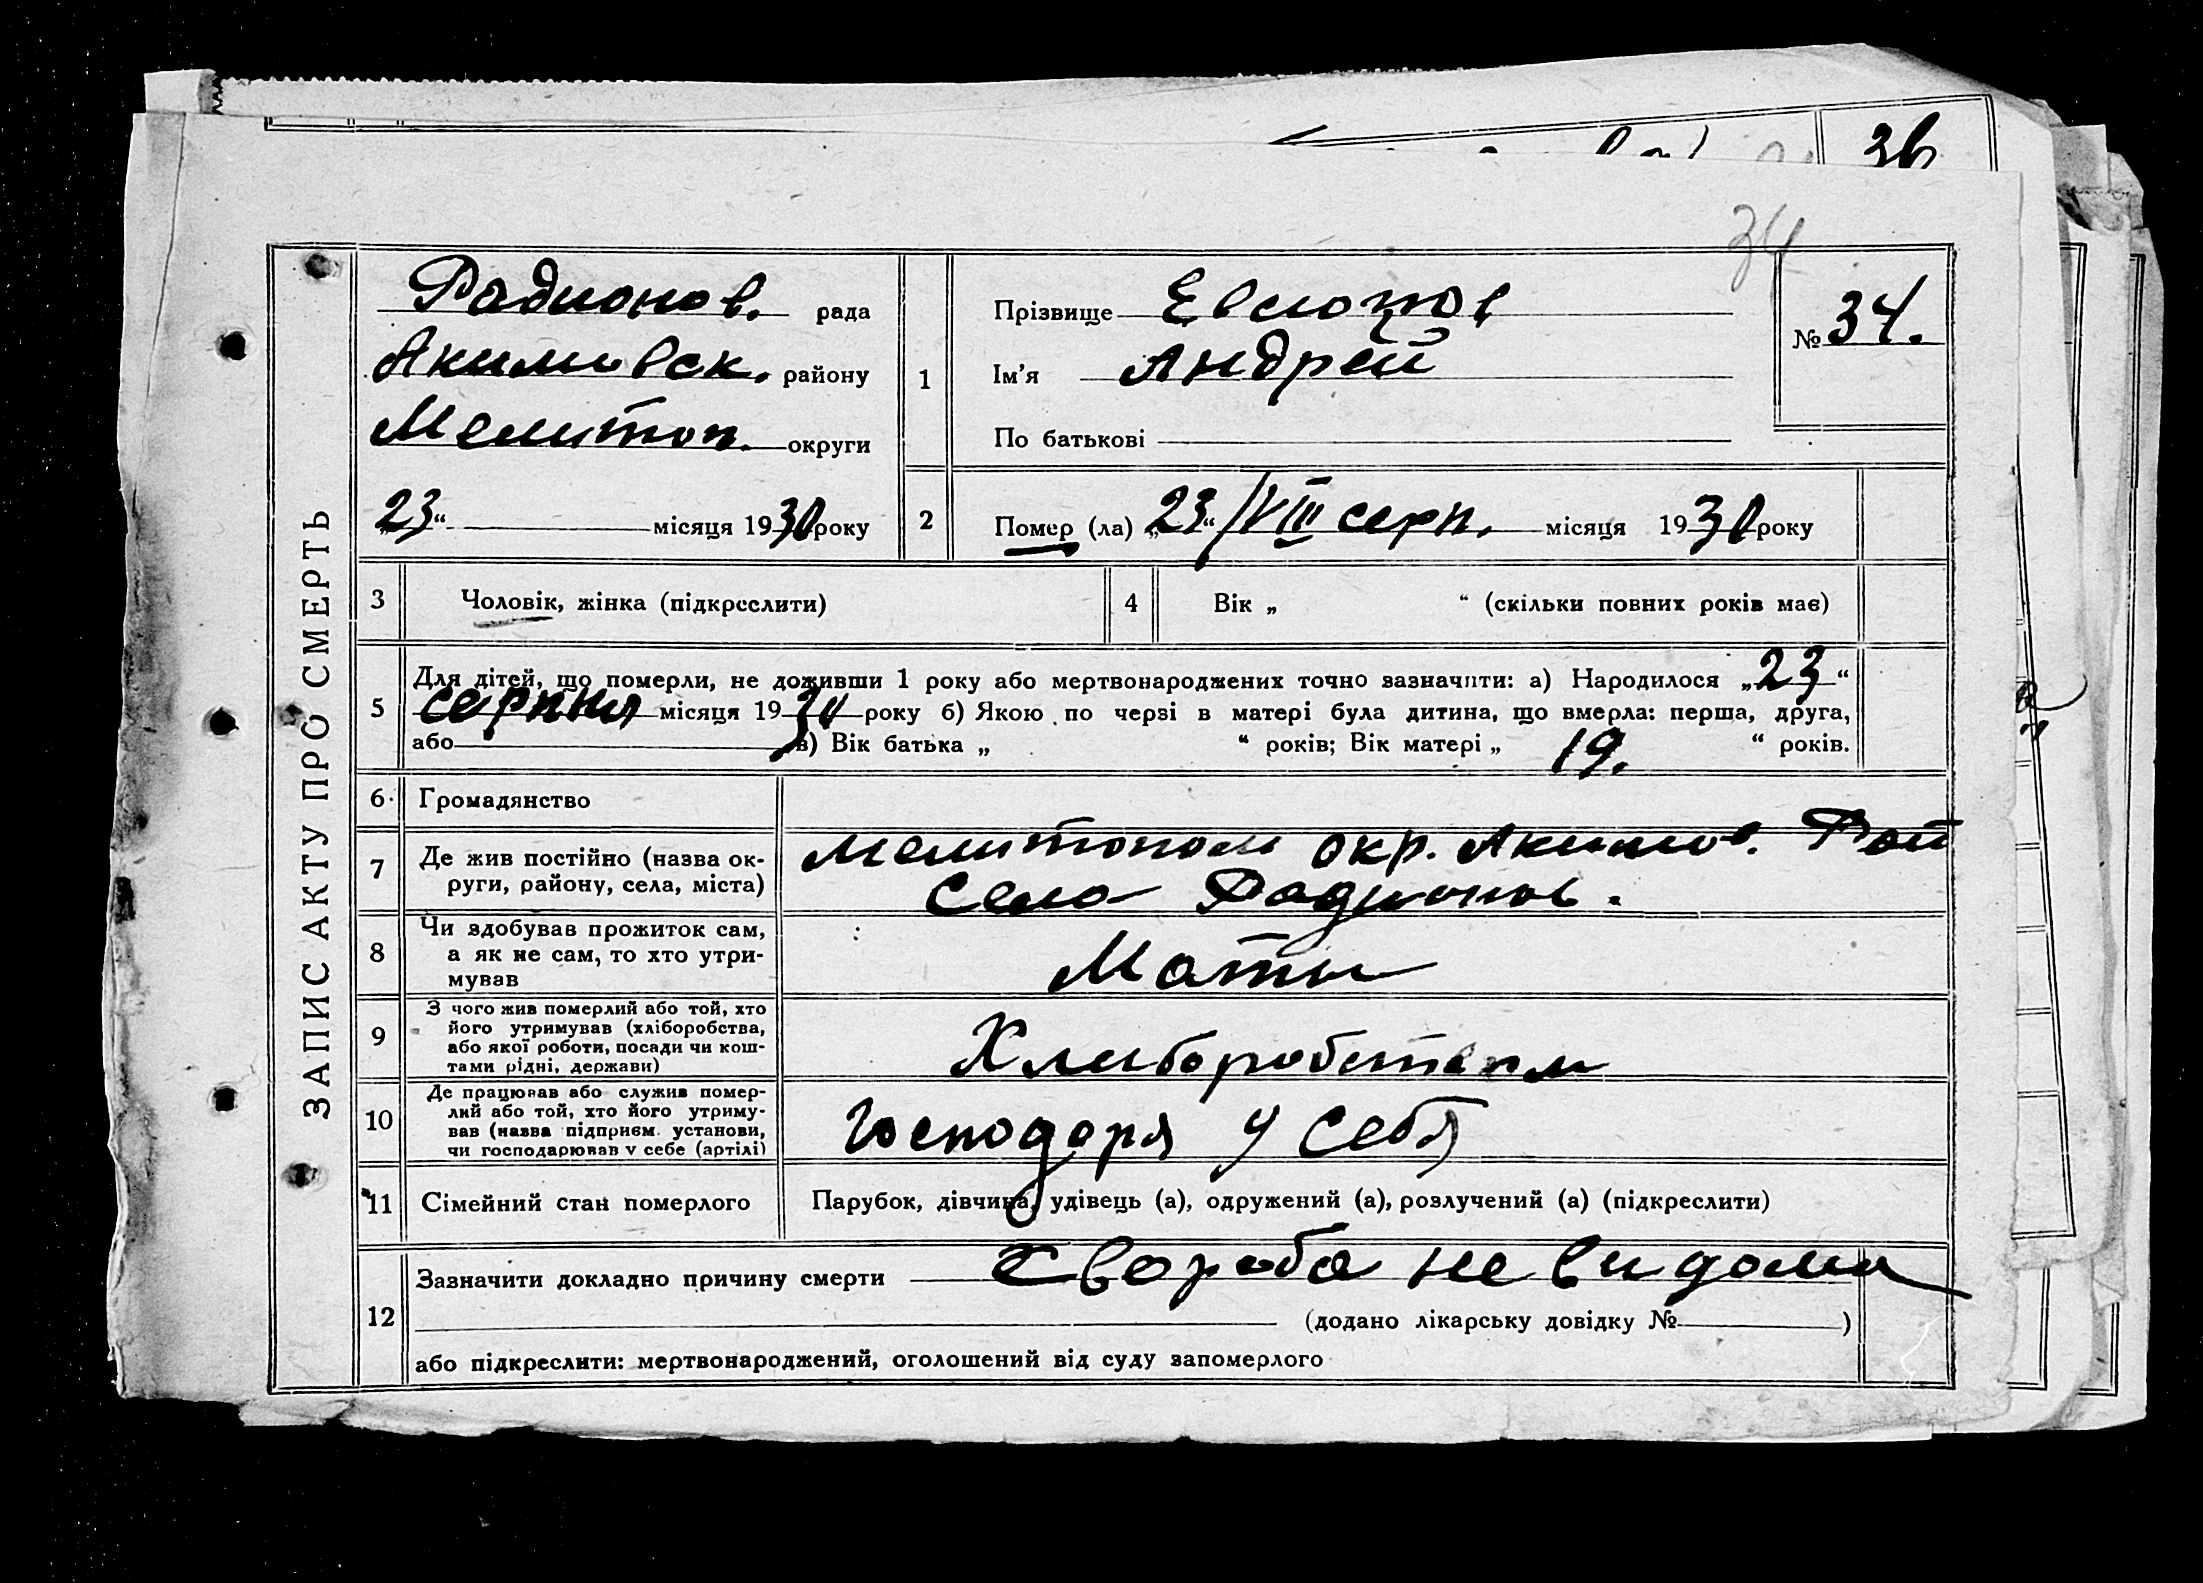 36
34
ЗАПИС АКТУ ПРО СМЕРТЬ
Радионов. рада
Акимовск. району
Мелитоп. округи
„23“ місяця 1930 року
1
Прізвище
Ім’я Андрей
По батькові
№ 34.
2
Помер (ла) „23“/VIII серп. місяця 1930 року
3 Чоловік, жінка (підкреслити)
4 Вік „ “ (скільки повних років має)
5
Для дітей, що померли, не доживши 1 року або мертвонароджених точно зазначити: а) Народилося „23“
серпня місяця 1930 року б) Якою по черзі в матері була дитина, що вмерла: перша, друга,
або в) Вік батька „ “ років; Вік матері „ 19. “ років.
6 Громадянство
7
Де жив постійно (назва ок-
руги, району, села, міста)
Мелитопол окр. Акимов. Рай
село Радионов.
8
Чи здобував прожиток сам,
а як не сам, то хто утри-
мував
Маты
9
З чого жив померлий або той, хто
його утримував (хліборобства,
або якої роботи, посади чи кош-
тами рідні, держави)
Хлиборобством
10
Де працював або служив помер-
лий або той, хто його утриму-
вав (назва підприєм. установи,
чи господарював у себе (артілі)
Господоря у себя
11 Сімейний стан померлого
Парубок, дівчина, удівець (а), одружений (а), розлучений (а) (підкреслити)
12
Зазначити докладно причину смерти Свороба не видома
(додано лікарську довідку № )
або підкреслити: мертвонароджений, оголошений від суду запомерлого